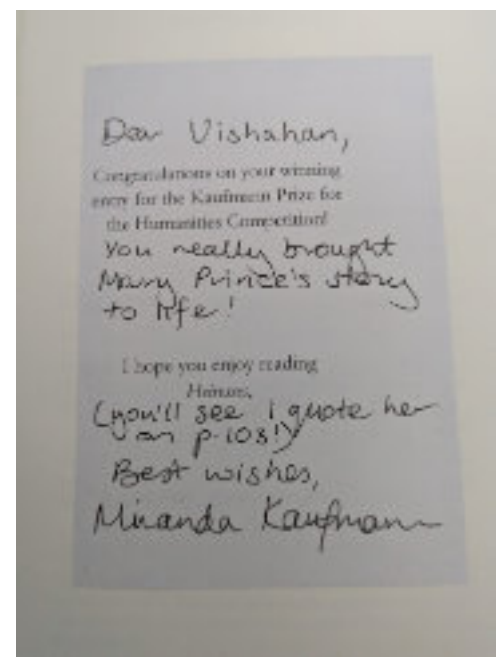 Dear Vishahan,
Congratulations on your winning
entry for the Kaufmann Prize for
the Humanities Competition!
You really brought
Mary Prince's story
to life!
I hope you enjoy reading
Heiresses,
(you'll see I quote her
on p.103!)
Best wishes,
Miranda Kaufmann